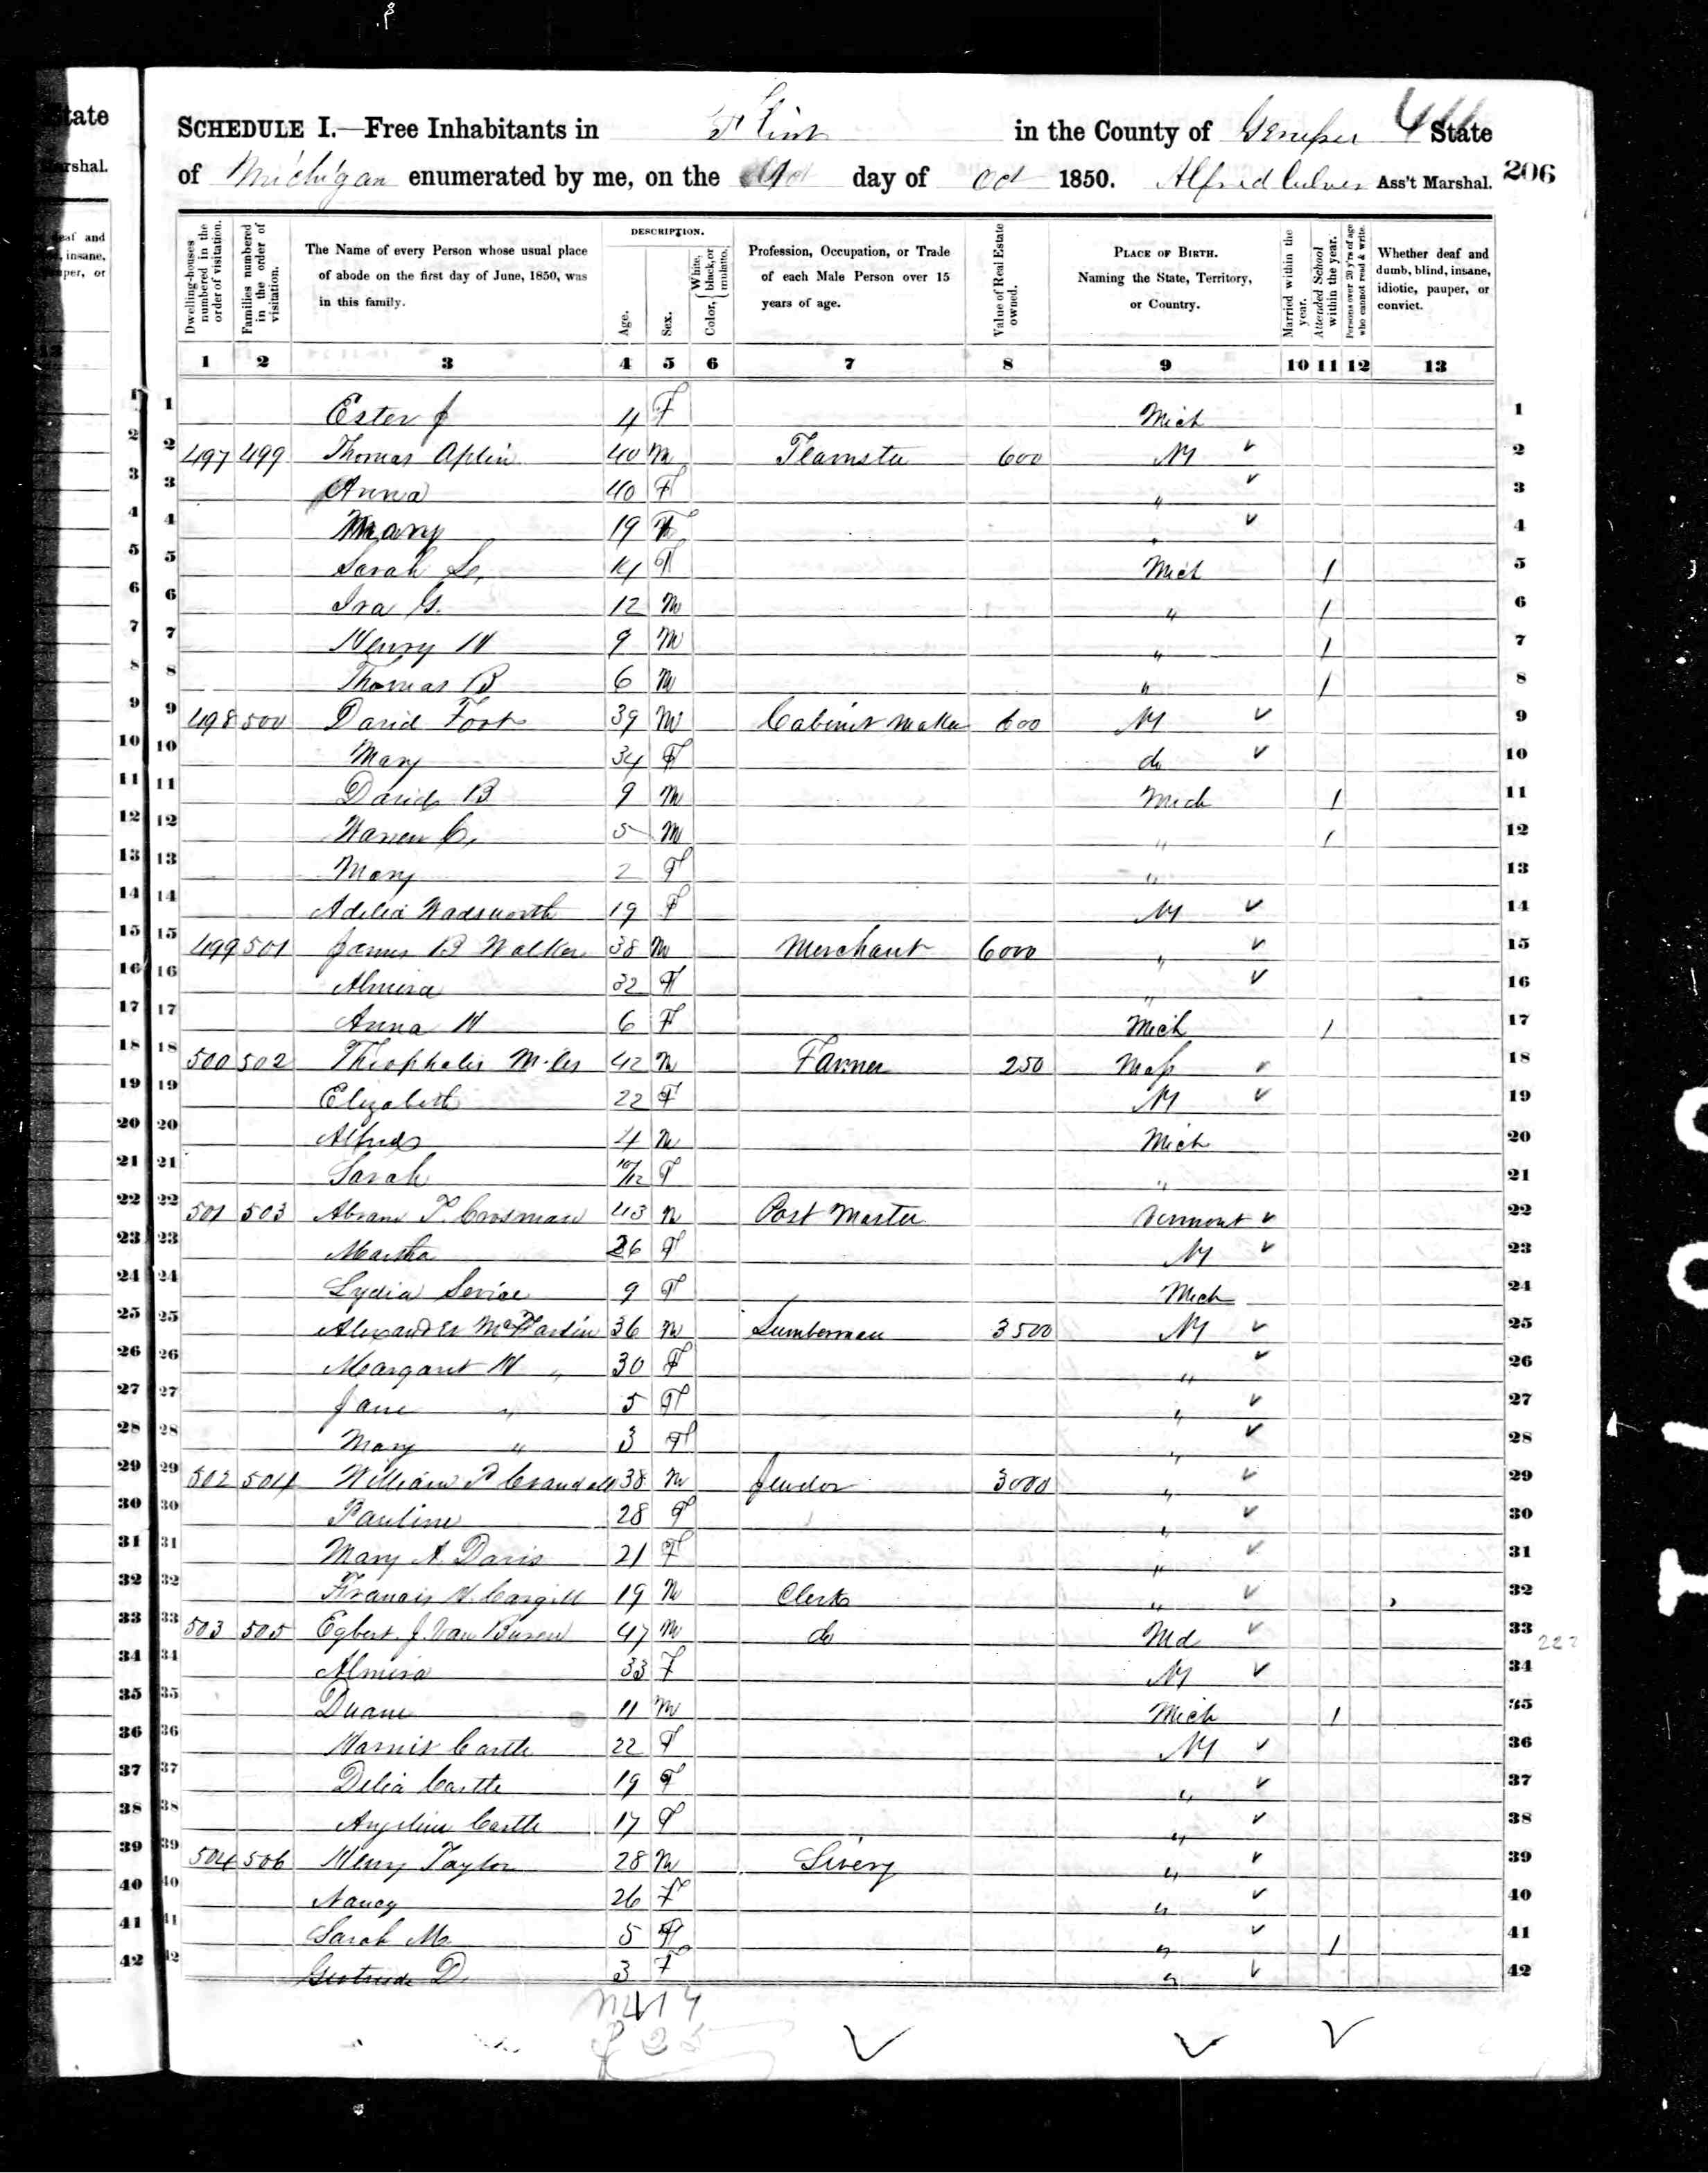 SCHEDULE I.—Free Inhabitants in Flint in the County of Genesee State
of Michigan enumerated by me, on the day of Oct 1850. Alfred Culver Ass't Marshal. 206
Dwelling-houses numbered in the order of visitation.
Families numbered in the order of visitation.
The Name of every Person whose usual place of abode on the first day of June, 1850, was in this family.
DESCRIPTION.
Age.
Sex.
Color, { White, black, or mulatto.
Profession, Occupation, or Trade of each Male Person over 15 years of age.
Value of Real Estate owned.
PLACE OF BIRTH. Naming the State, Territory, or Country.
Married within the year.
Attended School within the year.
Persons over 20 y'rs of age who cannot read & write.
Whether deaf and dumb, blind, insane, idiotic, pauper, or convict.
1 2 3 4 5 6 7 8 9 10 11 12 13
1 Ester J 4 F Mich 1
2 497 499 Thomas Aplin 40 M Teamster 600 NY 2
3 Anna 40 F " 3
4 Mary 19 F " 4
5 Sarah L. 14 F Mich 1 5
6 Ira G. 12 M " 1 6
7 Henry H 9 M " 1 7
8 Thomas B 6 M " 1 8
9 498 500 David Foot 39 M Cabinet Maker 600 NY 9
10 Mary 34 F do 10
11 David B 9 M Mich 1 11
12 Warren C. 5 M " 1 12
13 Mary 2 F " 13
14 Adelia Wadsworth 19 F NY 14
15 499 501 James B Walker 38 M Merchant 6000 " 15
16 Almira 32 F " 16
17 Anna H 6 F Mich 1 17
18 500 502 Theophalis Miles 42 M Farmer 250 Mass 18
19 Elizabeth 22 F NY 19
20 Alfred 4 M Mich 20
21 Sarah 10/12 F " 21
22 501 503 Abram T. Crosman 43 M Post Master Vermont 22
23 Martha 26 F NY 23
24 Lydia 9 F Mich 24
25 Alexander McFarlin 36 M Lumberman 3500 NY 25
26 Margaret W " 30 F " 26
27 Jane " 5 F " 27
28 Mary " 3 F " 28
29 502 504 William P Crandall 38 M 3000 " 29
30 Pauline 28 F " 30
31 Mary A. Davis 21 F " 31
32 Francis H. Cargill 19 M Clerk " 32
33 503 505 Egbert J. Van Buren 47 M do Md 33
34 Almira 33 F NY 34
35 Duane 11 M Mich 1 35
36 Harriet Castle 22 F NY 36
37 Delia Castle 19 F " 37
38 Angeline Castle 17 F " 38
39 504 506 Henry Taylor 28 M Livery " 39
40 Nancy 26 F " 40
41 Sarah M. 5 F " 1 41
42 Gertrude D. 3 F " 42